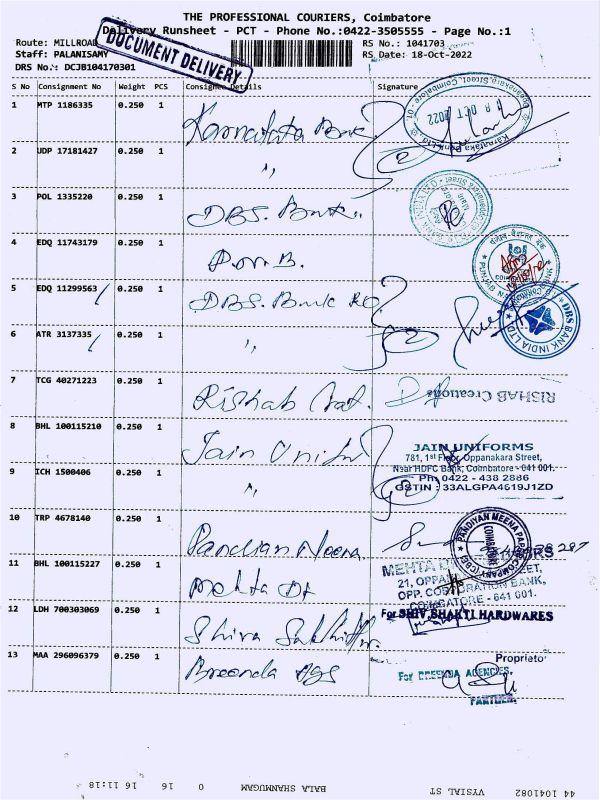 THE PROFESSIONAL COURIERS, Coimbatore
Delivery Runsheet - PCT - Phone No.:0422-3505555 - Page No.:1
Route: MILLROAD RS No.: 1041703
Staff: PALANISAMY RS Date: 18-Oct-2022
DRS No.: DCJB104170301
DOCUMENT DELIVERY
S No Consignment No Weight PCS Consignee Details Signature
1 MTP 1186335 0.250 1 Karnataka Bank
2 UDP 17181427 0.250 1 "
3 POL 1335220 0.250 1 DBS. Bank
4 EDQ 11743179 0.250 1
5 EDQ 11299563 0.250 1 DBS. Bank
6 ATR 3137335 0.250 1 "
7 TCG 40271223 0.250 1 Rishab
RISHAB Creations
8 BHL 100115210 0.250 1 Jain
JAIN UNIFORMS
781, 1st Floor, Oppanakara Street,
Near HDFC Bank, Coimbatore - 641 001.
Ph: 0422 - 438 2886
GSTIN : 33ALGPA4619J1ZD
9 ICH 1500406 0.250 1 "
10 TRP 4678140 0.250 1 Pandian Meena
11 BHL 100115227 0.250 1 Mehta
MEHTA
21, OPPANAKARA STREET,
OPP. CORPORATION BANK,
COIMBATORE - 641 001.
12 LDH 700303069 0.250 1 Shiva
For SHIV SHAKTI HARDWARES
Proprietor
13 MAA 296096379 0.250 1 Breenda Ags
For BREENDA AGENCIES,
PARTNER
DBS BANK INDIA LTD
44 1041082 VYSIAL ST BALA SHANMUGAM 0 16 16 11:18